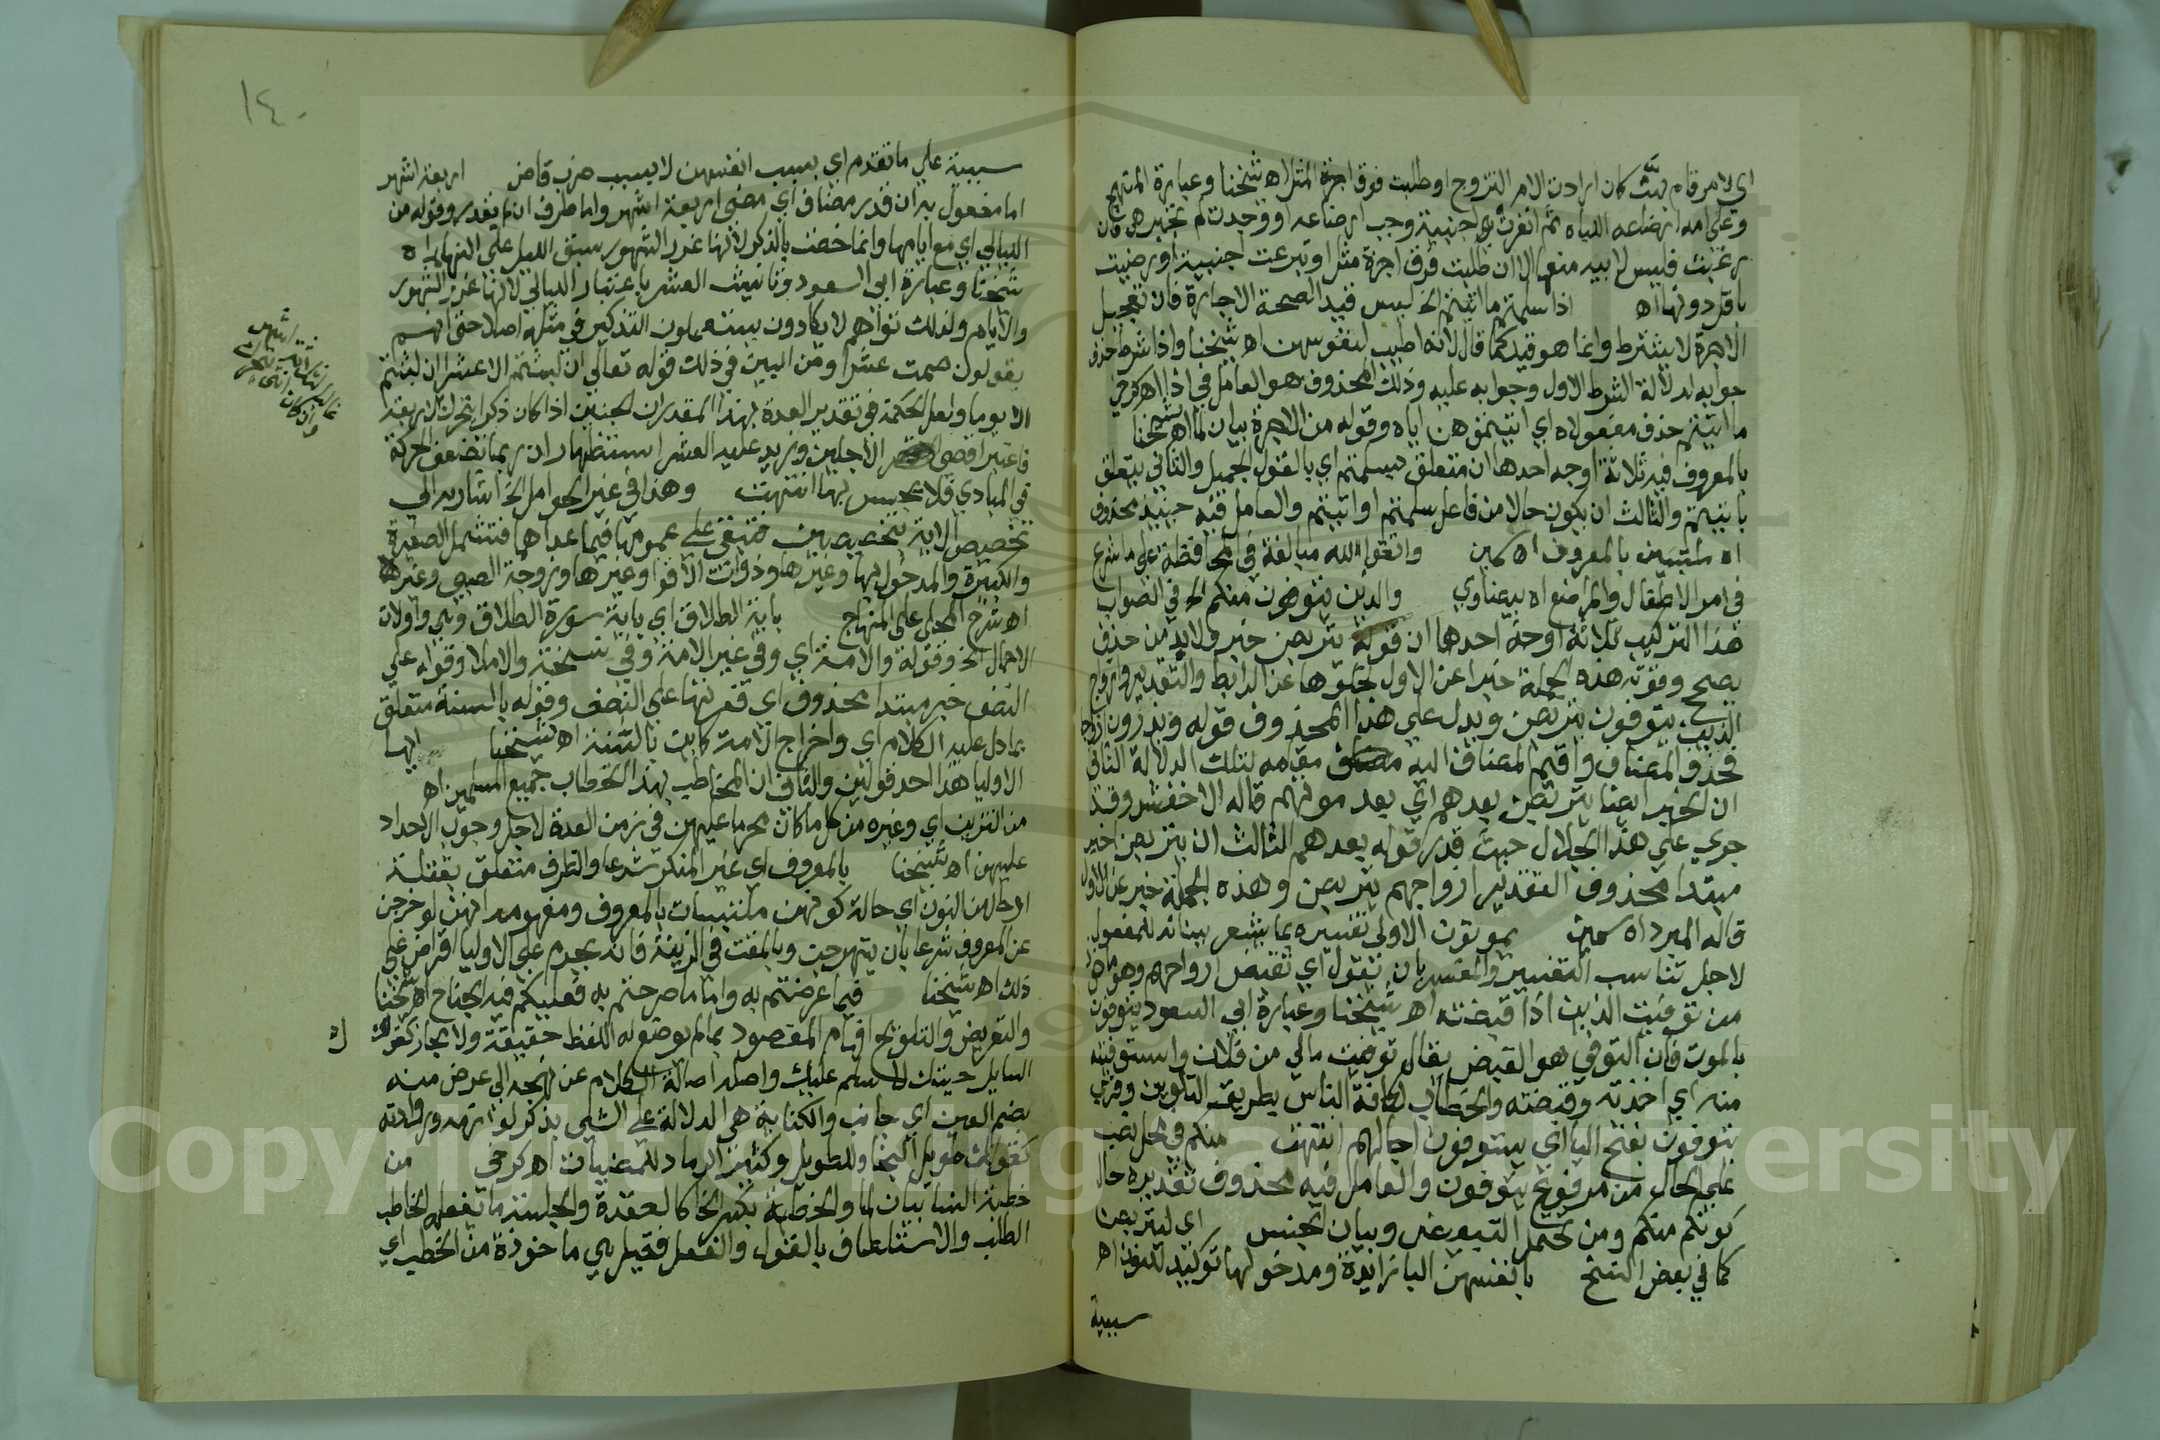 اي لامر قام بهن كان اردن الامر التزوج او طلبت فوق اجرة المثل اه شيخنا وعبارة المنهج
وعلى امه ارضاعه اللبا ثم ان انفردت هي او اجنبية وجب ارضاعه او وجدتا لم تجبر هي فان
رغبت فليس لابيه منعها الا ان طلبت فوق اجرة مثل او تبرعت اجنبية او رضيت
باقل دونها اه اذا سلمتم ما اتيتم الخ ليس قيدا لصحة الاجارة فان تعجيل
الاجرة لا يشترط وانما هو قيد كما قال لانه اطيب لنفوسهن اه شيخنا واذا شرط حذف
جوابه لدلالة الشرط الاول وجوابه عليه وذلك المحذوف هو العامل في اذا اه كرخي
ما اتيتم حذف مفعولاه اي اتيتموهن اياه وقوله من الاجرة بيان لما اه شيخنا
بالمعروف فيه ثلاثة اوجه احدها ان متعلق بسلمتم اي بالقول الجميل والثاني يتعلق
باتيتم والثالث ان يكون حالا من فاعل سلمتم او اتيتم والعامل فيه حينئذ محذوف
اه ملتبسين بالمعروف اه سمين واتقوا الله مبالغة في المحافظة على ما شرع
في امر الاطفال والمراضع اه بيضاوي والذين يتوفون منكم الخ في الصواب
هذا التركيب ثلاثة اوجه احدها ان قوله يتربصن خبر ولابد من حذف
يصحح وقوع هذه الجملة خبرا عن الاول لخلوها عن الرابط والتقدير وازواج
الذين يتوفون يتربصن ويدل على هذا المحذوف قوله ويذرون ازواجا
فحذف المضاف واقيم المضاف اليه مقامه لتلك الدلالة الثاني
ان الخبر ايضا يتربصن بعدهم اي بعد موتهم قاله الاخفش وقد
جرى على هذا الجلال حيث قدر قوله بعدهم الثالث ان يتربصن خبر
مبتدا محذوف التقدير ازواجهم يتربصن وهذه الجملة خبر عن الاول
قاله المبرد اه سمين يموتون الاولى تفسيره بما يشعر ببنائه للمفعول
لاجل تناسب التفسير والمفسر بان يقول اي تقبض ارواحهم وهو ماخوذ
من توفيت الدين اذا قبضته اه شيخنا وعبارة ابي السعود يتوفون
بالموت فان التوفي هو القبض يقال توفيت مالي من فلان واستوفيته
منه اي اخذته وقبضته والخطاب لكافة الناس بطريق التلوين وقرئ
يتوفون بفتح الياء اي يستوفون اجالهم انتهت منكم في محل نصب
على الحال من مرفوع يتوفون والعامل فيه محذوف تقديره حال
كونكم منكم ومن تحتمل التبعيض وبيان الجنس اي ليتربصن
كما في بعض النسخ بانفسهن البا زايدة ومدخولها توكيد للنون اه
سببية
١٤٠
سببية على ما تقدم اي بسبب انفسهن لا بسبب ضرب قاض اربعة اشهر
اما مفعول به ان قدر مضاف اي مضي اربعة اشهر واما ظرف ان لم يقدر وقوله من
الليالي اي مع ايامها وانما خصت بالذكر لانها غرر الشهور سبق الليل على النهار اه
شيخنا وعبارة ابي السعود وتانيث العشر باعتبار الليالي لانها غرر الشهور
والايام ولذلك تراهم لا يكادون يستعملون التذكير في مثله اصلا حتى انهم
يقولون صمت عشرا ومن البين في ذلك قوله تعالى ان لبثتم الا عشرا ان لبثتم
الا يوما ولعل الحكمة في تقدير العدة بهذا المقدر ان الجنين اذا كان ذكرا يتحرك لاربعة
فاعتبر اقصى الاجلين وزيد عليه العشر استظهارا ان ربما تضعف الحركة
في المبادي فلا يحس بها انتهت وهذا في غير الحوامل الخ اشار به الى
تخصيص الاية بتخصيصين فتبقى على عمومها فيما عداها فتشمل الصغيرة
والكبيرة والمدخول بها وغيرها وذوات الاقرا وغيرها وزوجة الصبي وغيرها
اه شرح المحلي على المنهاج باية الطلاق اي باية سورة الطلاق وهي واولات
الاحمال الخ وقوله والامة اي وفي غير الامة وفي نسخة والاماء وقوله على
النصف خبر مبتدا محذوف اي فعدتها على النصف وقوله بالسنة متعلق
بما دل عليه الكلام اي واخراج الامة كاين بالسنة اه شيخنا ايها
الاوليا هذا احد قولين والثاني ان المخاطب بهذا الخطاب جميع المسلمين اه
من التزين اي وغيره من كل ما كان محرما عليهن في زمن العدة لاجل وجوب الاحداد
عليهن اه شيخنا بالمعروف اي غير المنكر شرعا والظرف متعلق بفعلن
او حال من النون اي حالة كونهن ملتبسات بالمعروف ومفهومه انهن لو خرجن
عن المعروف شرعا بان يتبهرجن ويبالغن في الزينة فانه يحرم على الاوليا اقرارهن على
ذلك اه شيخنا فيما عرضتم به واما ما صرحتم به فعليكم فيه الجناح اه شيخنا
والتعريض والتلويح افهام المقصود بما لم يوضع له اللفظ حقيقة ولا مجازا كقول
السايل جئتك لاسلم عليك واصله امالة الكلام عن نهجه الى عرض منه
بضم العين اي جانب والكناية هي الدلالة على الشي بذكر لوازمه وروادفه
كقولك طويل النجاد للطويل وكثير الرماد للمضياف اه كرخي من
خطبة النساء بيان لما والخطبة بكسر الخا كالقعدة والجلسة ما يفعله الخاطب
الطلب والاستلطاف بالقول والفعل فقيل هي ماخوذة من الخطب اي